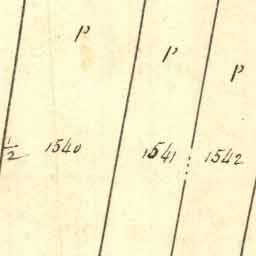 P
P
P
1/2 1540 1541 1542